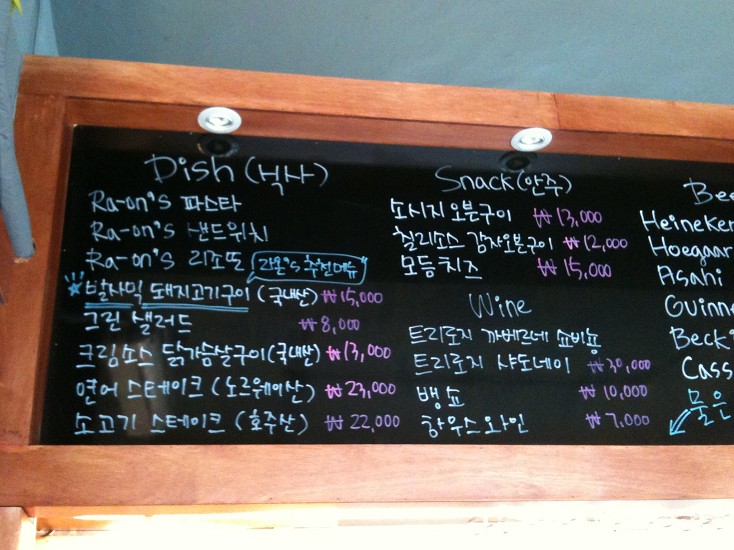 Dish (식사)
Ra-on's 파스타
Ra-on's 샌드위치
Ra-on's 리조또
라온's 추천메뉴
발사믹 돼지고기구이 (국내산) ₩15,000
그린 샐러드 ₩8,000
크림소스 닭가슴살구이 (국내산) ₩13,000
연어 스테이크 (노르웨이산) ₩23,000
소고기 스테이크 (호주산) ₩22,000
Snack (안주)
소시지오븐구이 ₩13,000
칠리소스 감자오븐구이 ₩12,000
모듬치즈 ₩15,000
Wine
트리로지 까베르네 쇼비뇽
트리로지 샤도네이 ₩30,000
뱅쇼 ₩10,000
하우스와인 ₩7,000
Bee
Heineken
Hoegaar
Asahi
Guinne
Beck'
Cass